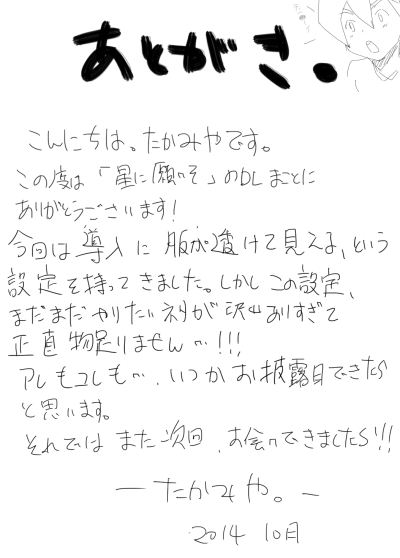 あとがき。
こんにちは。たかみやです。
この度は「星に願いを」のDLまことに
ありがとうございます!
今回は導入に服が透けて見える、という
設定を持ってきました。しかしこの設定、
まだまだやりたいネタが沢山ありすぎて
正直物足りません…!!!
アレもコレも…、いつかお披露目できたら
と思います。
それではまた次回、お会いできましたら!!
―たかみや。―
2014 10月